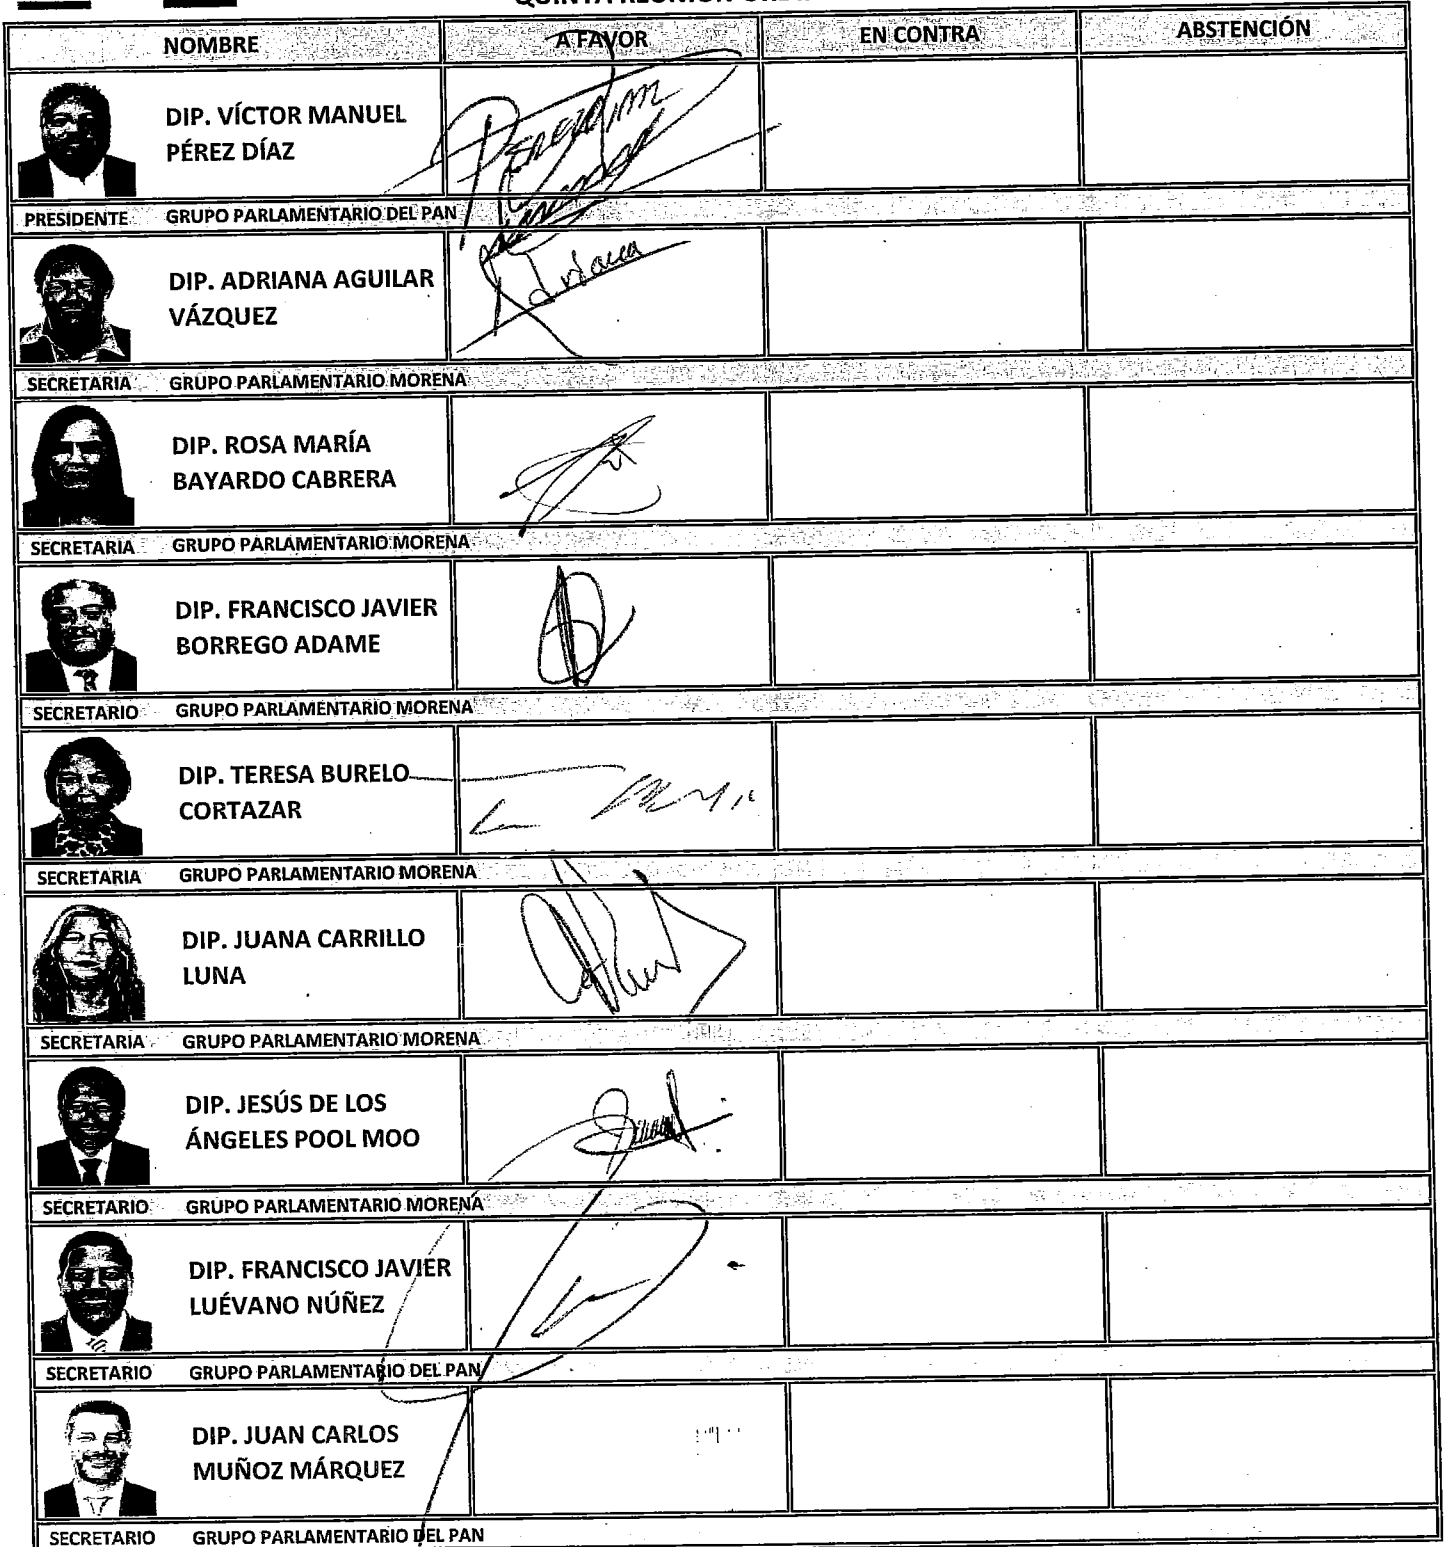 NOMBRE A FAVOR EN CONTRA ABSTENCIÓN
DIP. VÍCTOR MANUEL
PÉREZ DÍAZ
PRESIDENTE GRUPO PARLAMENTARIO DEL PAN
DIP. ADRIANA AGUILAR
VÁZQUEZ
Adriana
SECRETARIA GRUPO PARLAMENTARIO MORENA
DIP. ROSA MARÍA
BAYARDO CABRERA
SECRETARIA GRUPO PARLAMENTARIO MORENA
DIP. FRANCISCO JAVIER
BORREGO ADAME
SECRETARIO GRUPO PARLAMENTARIO MORENA
DIP. TERESA BURELO
CORTAZAR
SECRETARIA GRUPO PARLAMENTARIO MORENA
DIP. JUANA CARRILLO
LUNA
SECRETARIA GRUPO PARLAMENTARIO MORENA
DIP. JESÚS DE LOS
ÁNGELES POOL MOO
SECRETARIO GRUPO PARLAMENTARIO MORENA
DIP. FRANCISCO JAVIER
LUÉVANO NÚÑEZ
SECRETARIO GRUPO PARLAMENTARIO DEL PAN
DIP. JUAN CARLOS
MUÑOZ MÁRQUEZ
SECRETARIO GRUPO PARLAMENTARIO DEL PAN